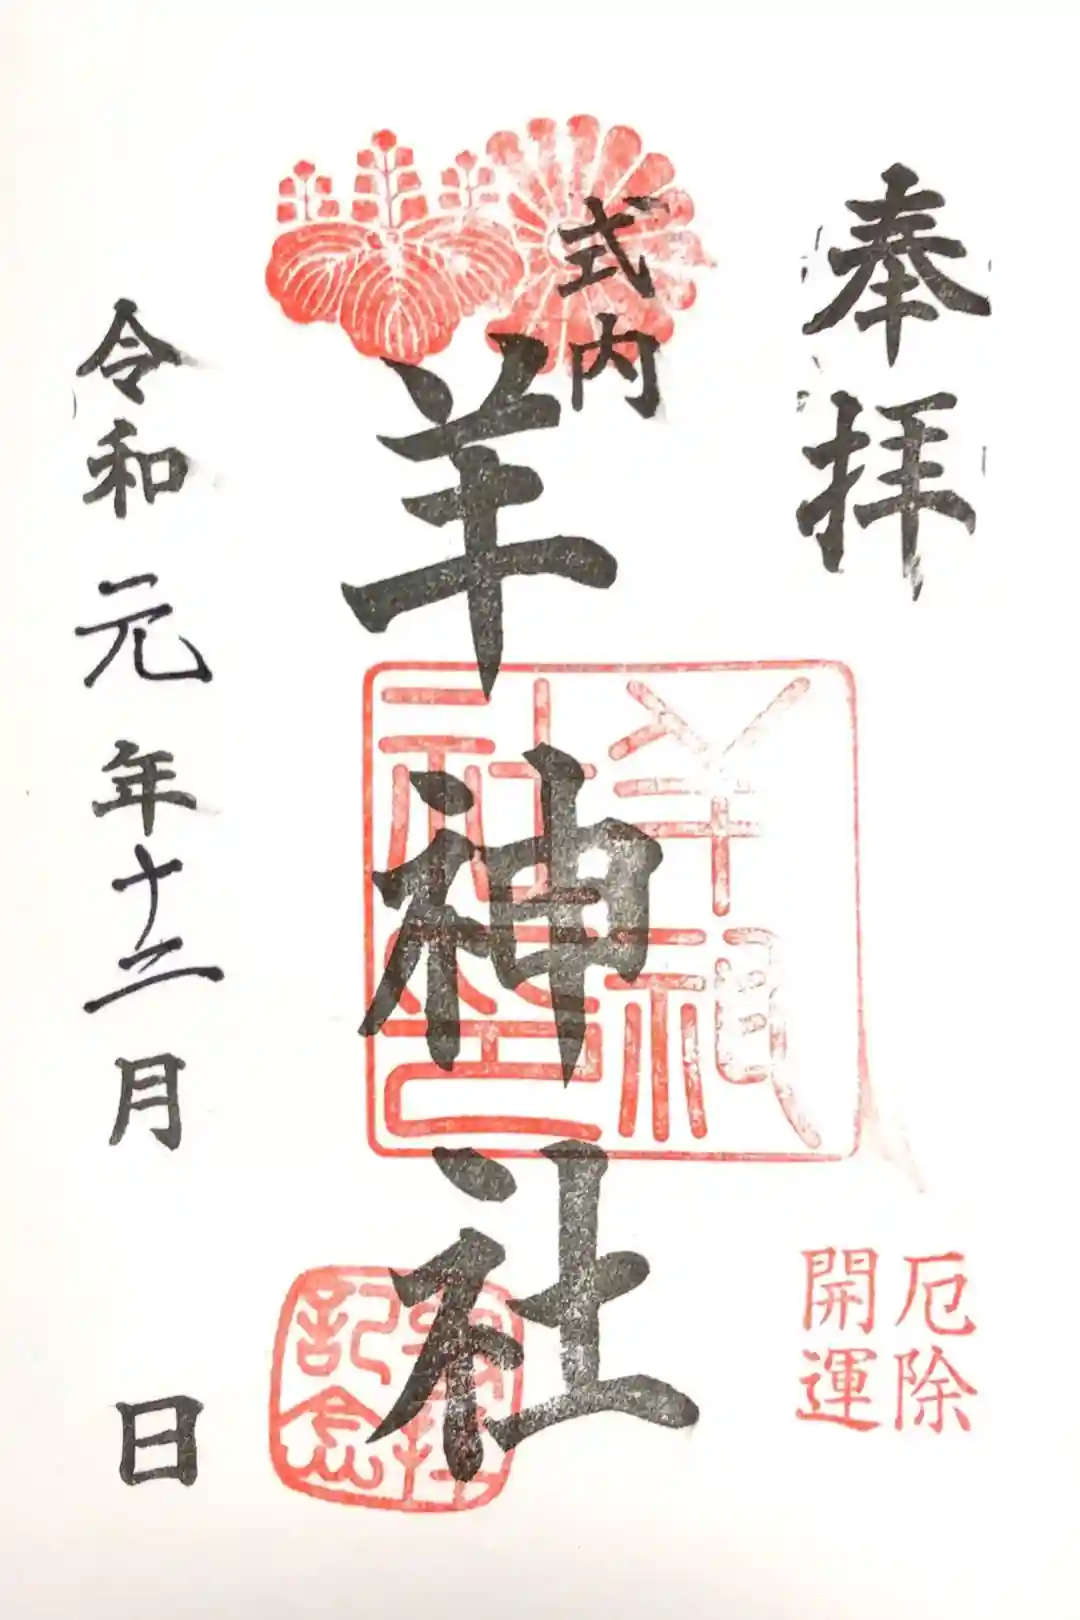 奉拝
厄除
開運
式内
羊神社
羊神
社之印
参拝
記念
令和元年十二月 日